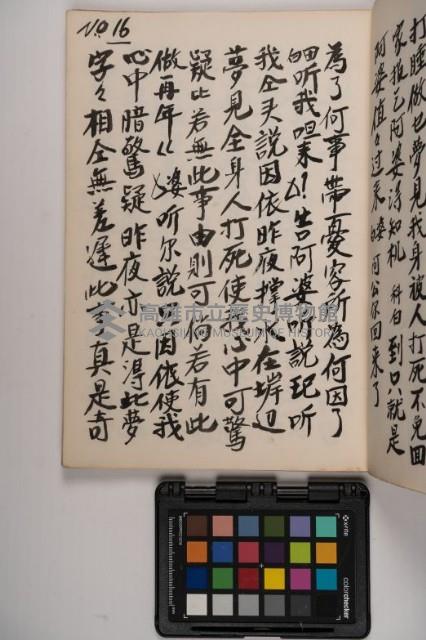 打睡做也夢見我身被人打死不免回
家報乞阿婆得知机 科白 到口八就是
阿婆值々过来 婆 阿公尔回来了
No 16
為了何事帶憂容所為何因了
听我呾来 公 告阿婆 听說玘听
我仝夫說因依昨夜撑 在墘边
夢見全身人打死使 心中可驚
疑比若無此事由則可 若有此
做再年〱 婆听尔說 因依使我
心中暗驚疑昨夜亦是得此夢
字々相仝無差遲此 真是奇
高雄市立歷史博物館
KAOHSIUNG MUSEUM OF HISTORY
x-rite
colorchecker